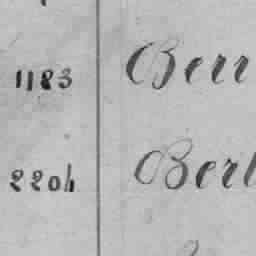 1183 Berr
2204 Berl